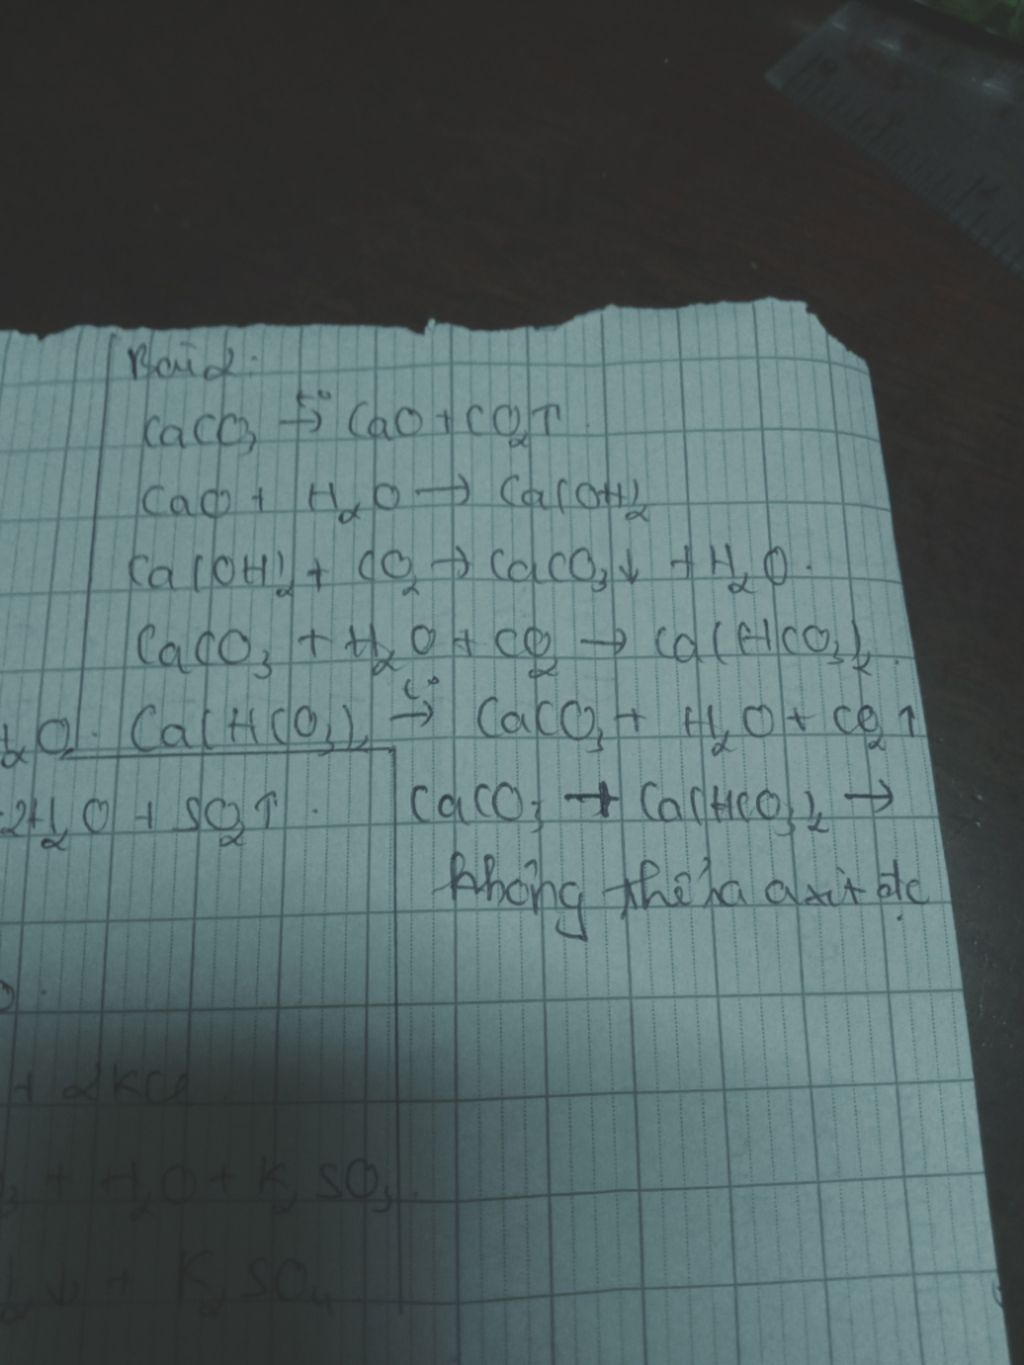 Bài 2:
CaCO₃ →(t°) CaO + CO₂↑
CaO + H₂O → Ca(OH)₂
Ca(OH)₂ + CO₂ → CaCO₃↓ + H₂O.
CaCO₃ + H₂O + CO₂ → Ca(HCO₃)₂.
₂O. Ca(HCO₃)₂ →(t°) CaCO₃ + H₂O + CO₂↑
2H₂O + SO₂↑. CaCO₃ → Ca(HCO₃)₂ →
không thể là axit đc
+ 2KCl
₃ + H₂O + K₂SO₃.
↓ + K₂SO₄